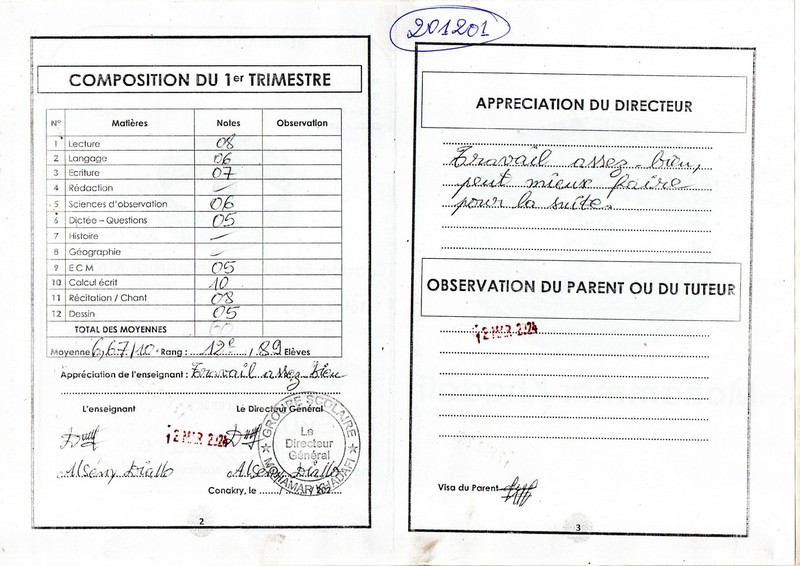 201201
COMPOSITION DU 1er TRIMESTRE
N° Matières Notes Observation
1 Lecture 08
2 Langage 06
3 Ecriture 07
4 Rédaction –
5 Sciences d'observation 06
6 Dictée – Questions 05
7 Histoire –
8 Géographie –
9 E C M 05
10 Calcul écrit 10
11 Récitation / Chant 08
12 Dessin 05
TOTAL DES MOYENNES 60
Moyenne 6,67/10 Rang : 12e / 89 Elèves
Appréciation de l'enseignant : Travail assez bien
L'enseignant Le Directeur Général
12 MAR 2024
Alsény Diallo Alsény Diallo
GROUPE SCOLAIRE
Le
Directeur
Général
Conakry, le ....../....../ 202...
2
APPRECIATION DU DIRECTEUR
Travail assez bien,
peut mieux faire
pour la suite.
OBSERVATION DU PARENT OU DU TUTEUR
12 MAR 2024
Visa du Parent
3